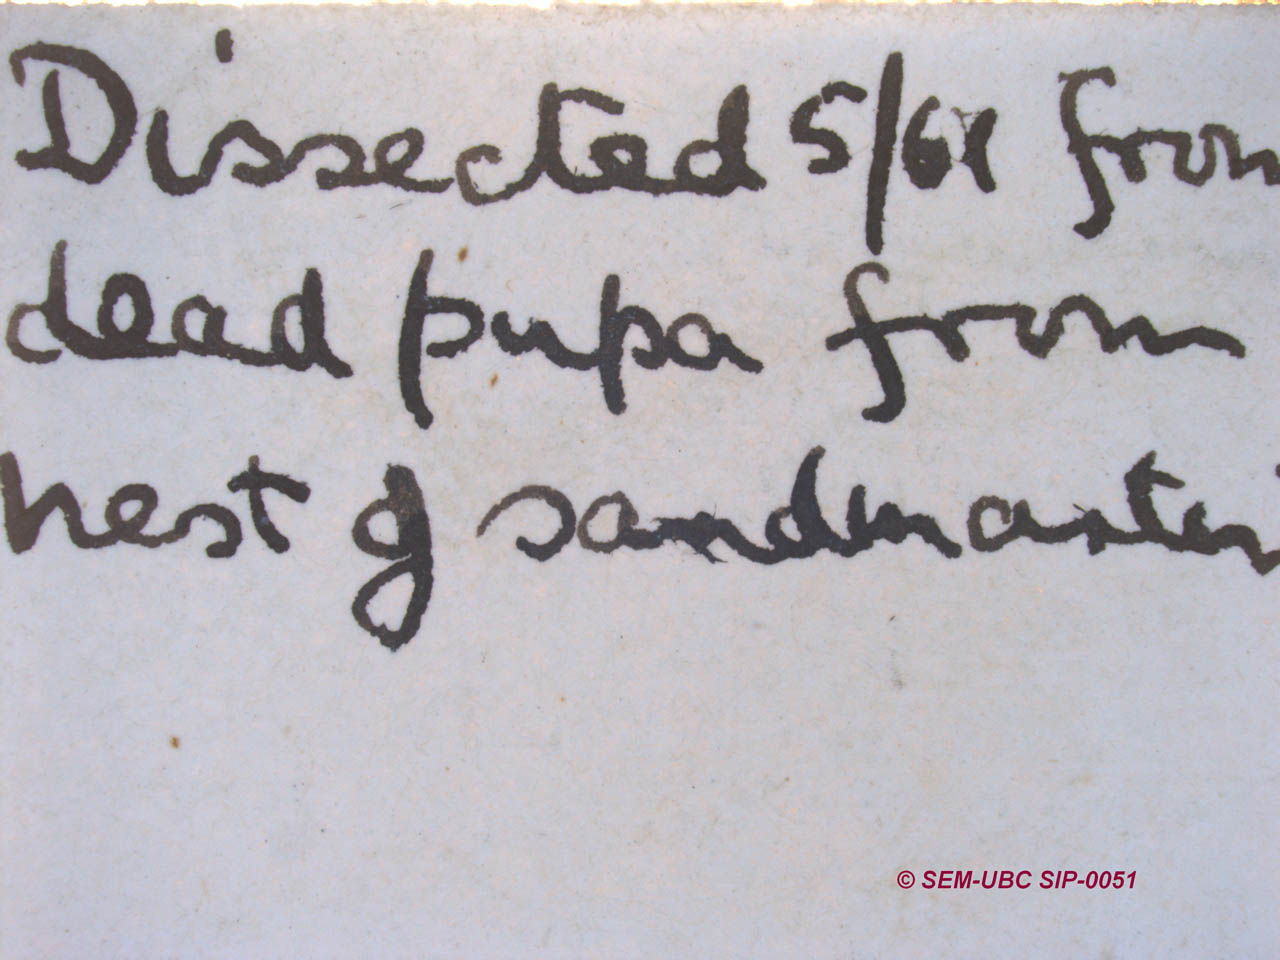 Dissected 5/61 from
dead pupa from
nest of sandmartin
© SEM-UBC SIP-0051